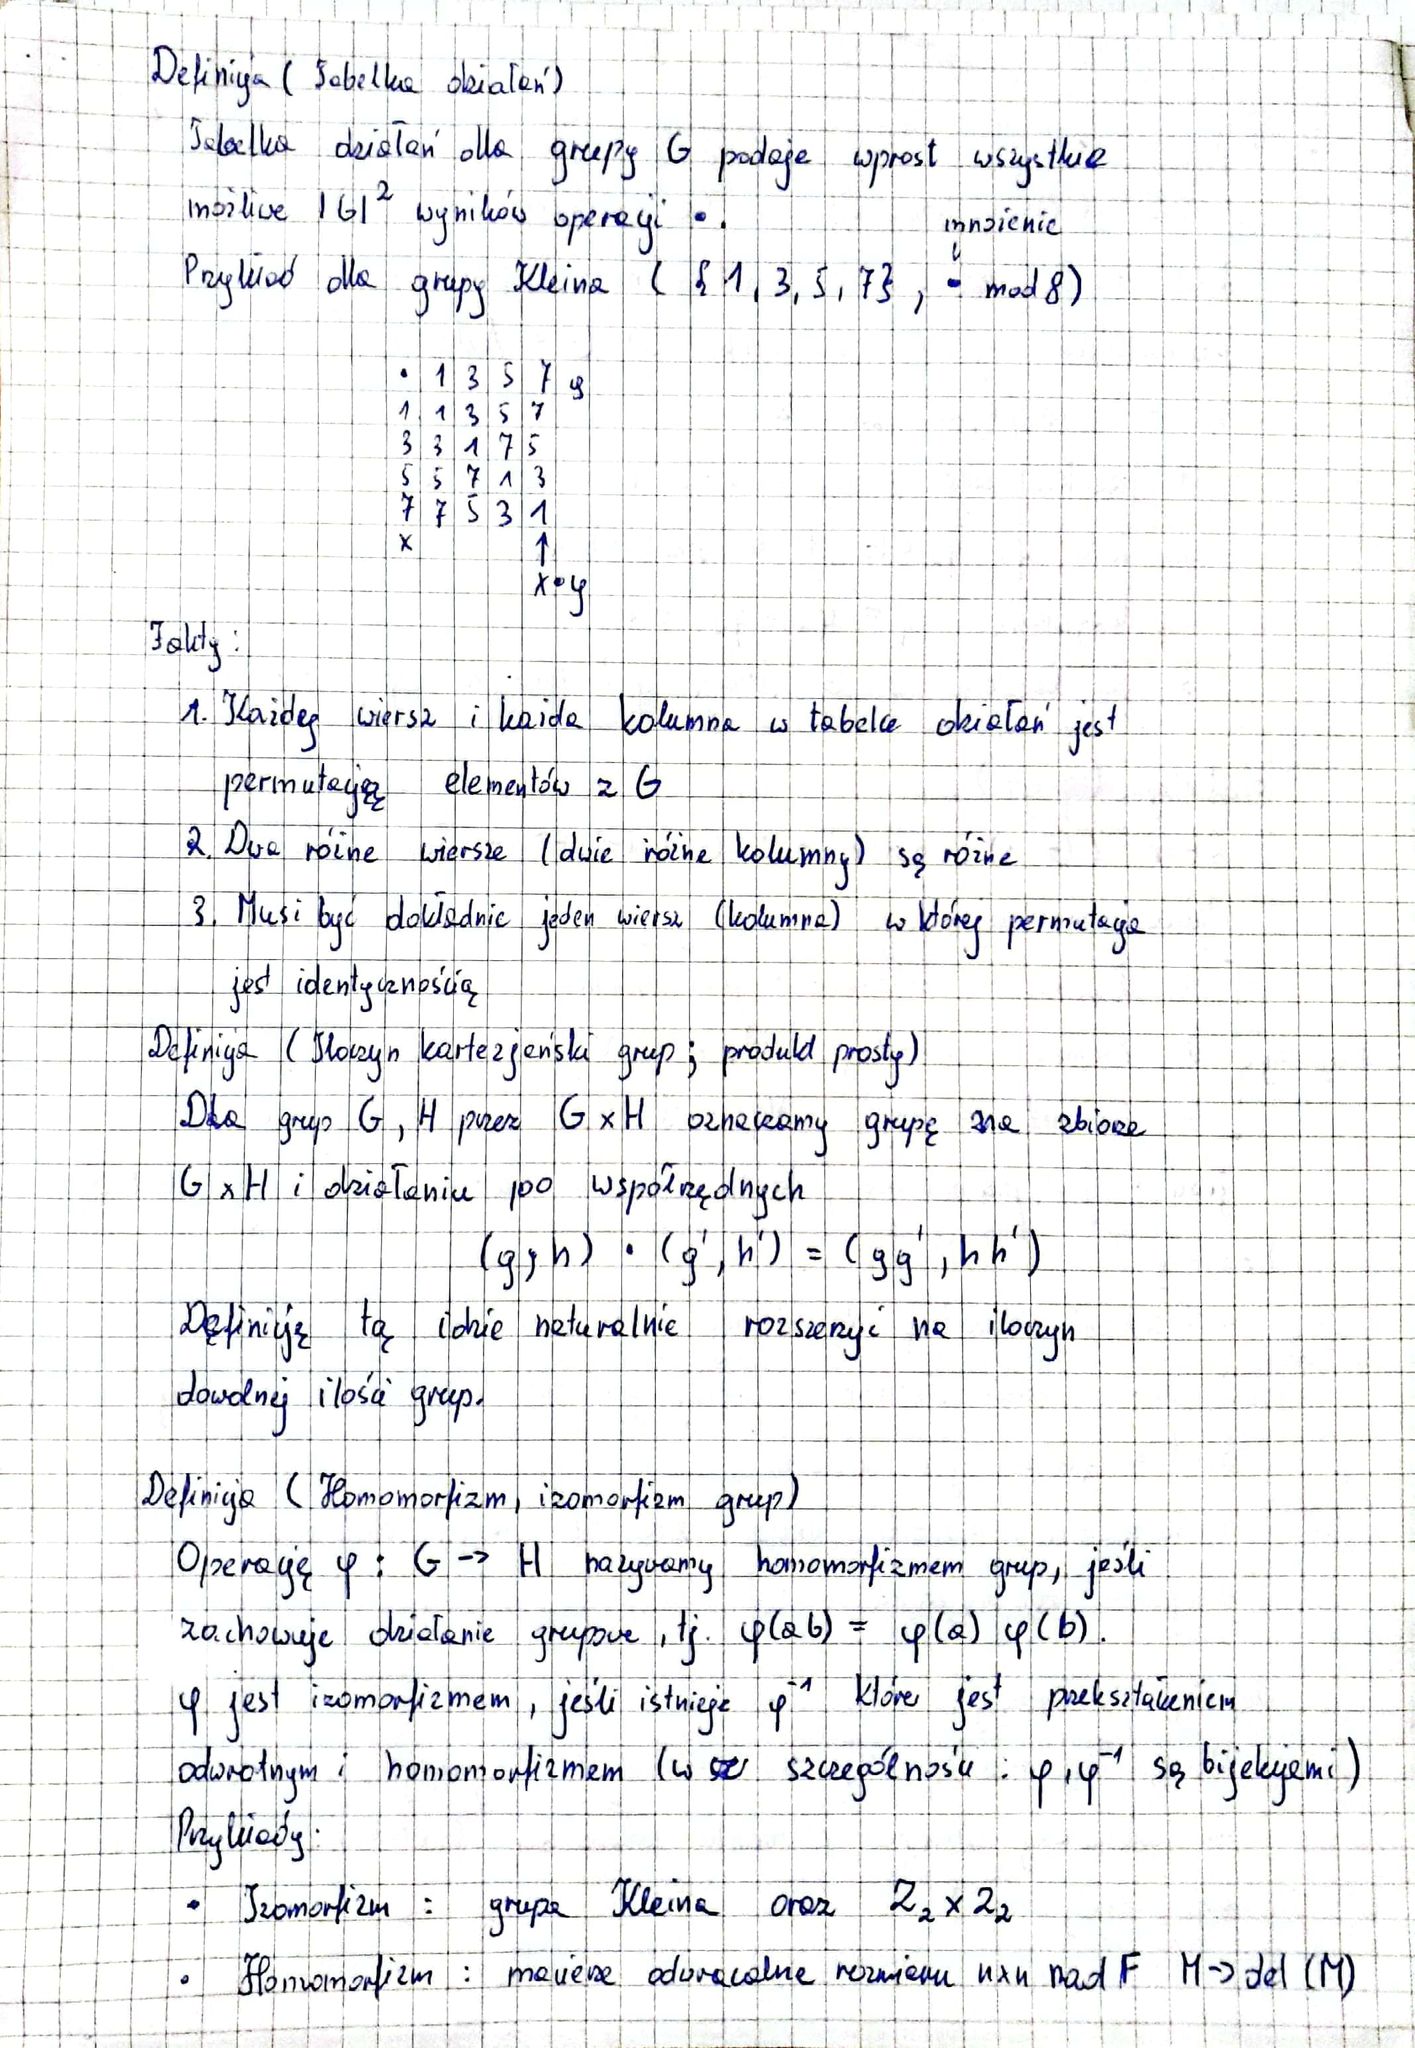 Definicja (Tabelka działań)
Tabelka działań dla grupy G podaje wprost wszystkie
możliwe |G|² wyników operacji •.
mnożenie
Przykład dla grupy Kleina ( {1, 3, 5, 7} , • mod 8)
• 1 3 5 7 y
1 1 3 5 7
3 3 1 7 5
5 5 7 1 3
7 7 5 3 1
x ↑
x•y
Fakty:
1. Każdey wiersz i każda kolumna w tabelce działań jest
permutacją elementów z G
2. Dwa różne wiersze (dwie różne kolumny) są różne
3. Musi być dokładnie jeden wiersz (kolumna) w której permutacja
jest identycznością
Definicja (Iloczyn kartezjański grup; produkt prosty)
Dla grup G, H przez G x H oznaczamy grupę na zbiorze
G x H i działaniu po współrzędnych
(g, h) • (g', h') = (gg', hh')
Definicję tą idzie naturalnie rozszerzyć na iloczyn
dowolnej ilości grup.
Definicja (Homomorfizm, izomorfizm grup)
Operację φ : G -> H nazywamy homomorfizmem grup, jeśli
zachowuje działanie grupowe, tj. φ(ab) = φ(a) φ(b).
φ jest izomorfizmem, jeśli istnieje φ⁻¹ które jest przekształceniem
odwrotnym i homomorfizmem (w szczególności : φ, φ⁻¹ są bijekcjami)
Przykłady:
• Izomorfizm : grupa Kleina oraz Z₂ x Z₂
• Homomorfizm : macierze odwracalne rozmiaru nxn nad F M -> det (M)